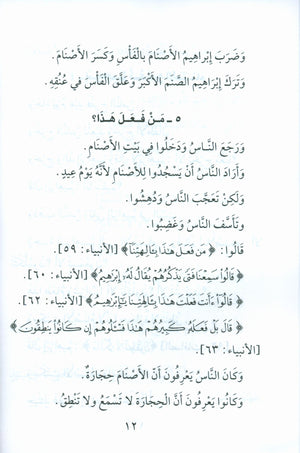 وَضَرَبَ إِبْراهِيمُ الأَصْنَامَ بالْفَأْسِ وَكَسَرَ الأَصْنَامَ.
وَتَرَكَ إِبْراهِيمُ الصَّنَمَ الأَكْبَرَ وَعَلَّقَ الْفَأْسَ في عُنُقِهِ.
٥ ـ مَنْ فَعَلَ هَذَا؟
وَرَجَعَ النَّاسُ وَدَخَلُوا فِي بَيْتِ الأَصْنَامِ.
وَأَرَادَ النَّاسُ أَنْ يَسْجُدُوا لِلأَصْنَامِ لأَنَّهُ يَوْمُ عِيدٍ.
وَلكِنْ تَعَجَّبَ النَّاسُ وَدُهِشُوا.
وَتأَسَّفَ النَّاسُ وَغَضِبُوا.
قَالُوا: ﴿مَن فَعَلَ هَٰذَا بِـَٔالِهَتِنَآ﴾ [الأنبياء: ٥٩].
﴿قَالُوا۟ سَمِعْنَا فَتًى يَذْكُرُهُمْ يُقَالُ لَهُۥٓ إِبْرَٰهِيمُ﴾ [الأنبياء: ٦٠].
﴿قَالُوٓا۟ ءَأَنتَ فَعَلْتَ هَٰذَا بِـَٔالِهَتِنَا يَـٰٓإِبْرَٰهِيمُ﴾ [الأنبياء: ٦٢].
﴿قَالَ بَلْ فَعَلَهُۥ كَبِيرُهُمْ هَٰذَا فَسْـَٔلُوهُمْ إِن كَانُوا۟ يَنطِقُونَ﴾
[الأنبياء: ٦٣].
وَكَانَ النَّاسُ يَعْرِفُونَ أَنَّ الأَصْنَامَ حِجَارَةٌ.
وَكَانُوا يَعْرِفُونَ أَنَّ الْحِجَارَةَ لَا تَسْمَعُ وَلا تَنْطِقُ.
١٢